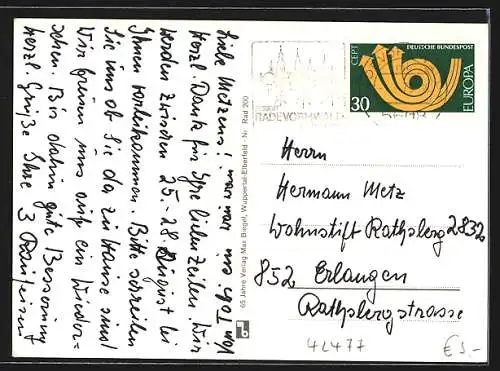 Liebe Metzens!
Herzl. Dank für Ihre lieben Zeilen. Wir
werden zwischen 25.-28. August bei
Ihnen vorbeikommen. Bitte schreiben
Sie uns ob Sie da zu Hause sind
Wir freuen uns auf ein Wieder-
sehen. Bis dahin gute Besserung
Herzl. Grüße Ihre 3
65 Jahre Verlag Max Biegel, Wuppertal-Elberfeld - Nr. Rad 200
RADEVORMWALD
CEPT
DEUTSCHE BUNDESPOST
EUROPA
30
Herrn
Hermann Metz
Wohnstift Rathsberg 2832
852 Erlangen
Rathsbergstrasse
42477
€ 3.-